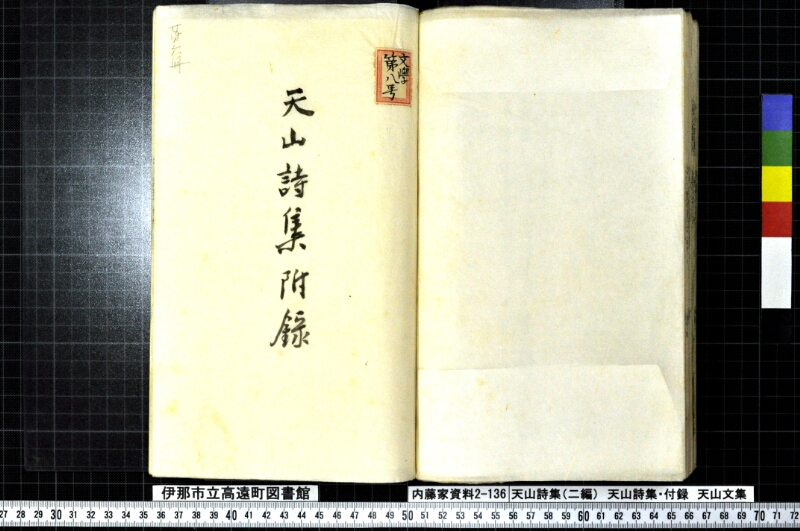 天山詩集附録
文學
第八号
伊那市立高遠町図書館
内藤家資料2-136 天山詩集(二編) 天山詩集・付録 天山文集
27 28 29 30 31 32 33 34 35 36 37 38 39 40 41 42 43 44 45 46 47 48 49 50 51 52 53 54 55 56 57 58 59 60 61 62 63 64 65 66 67 68 69 70 71 72